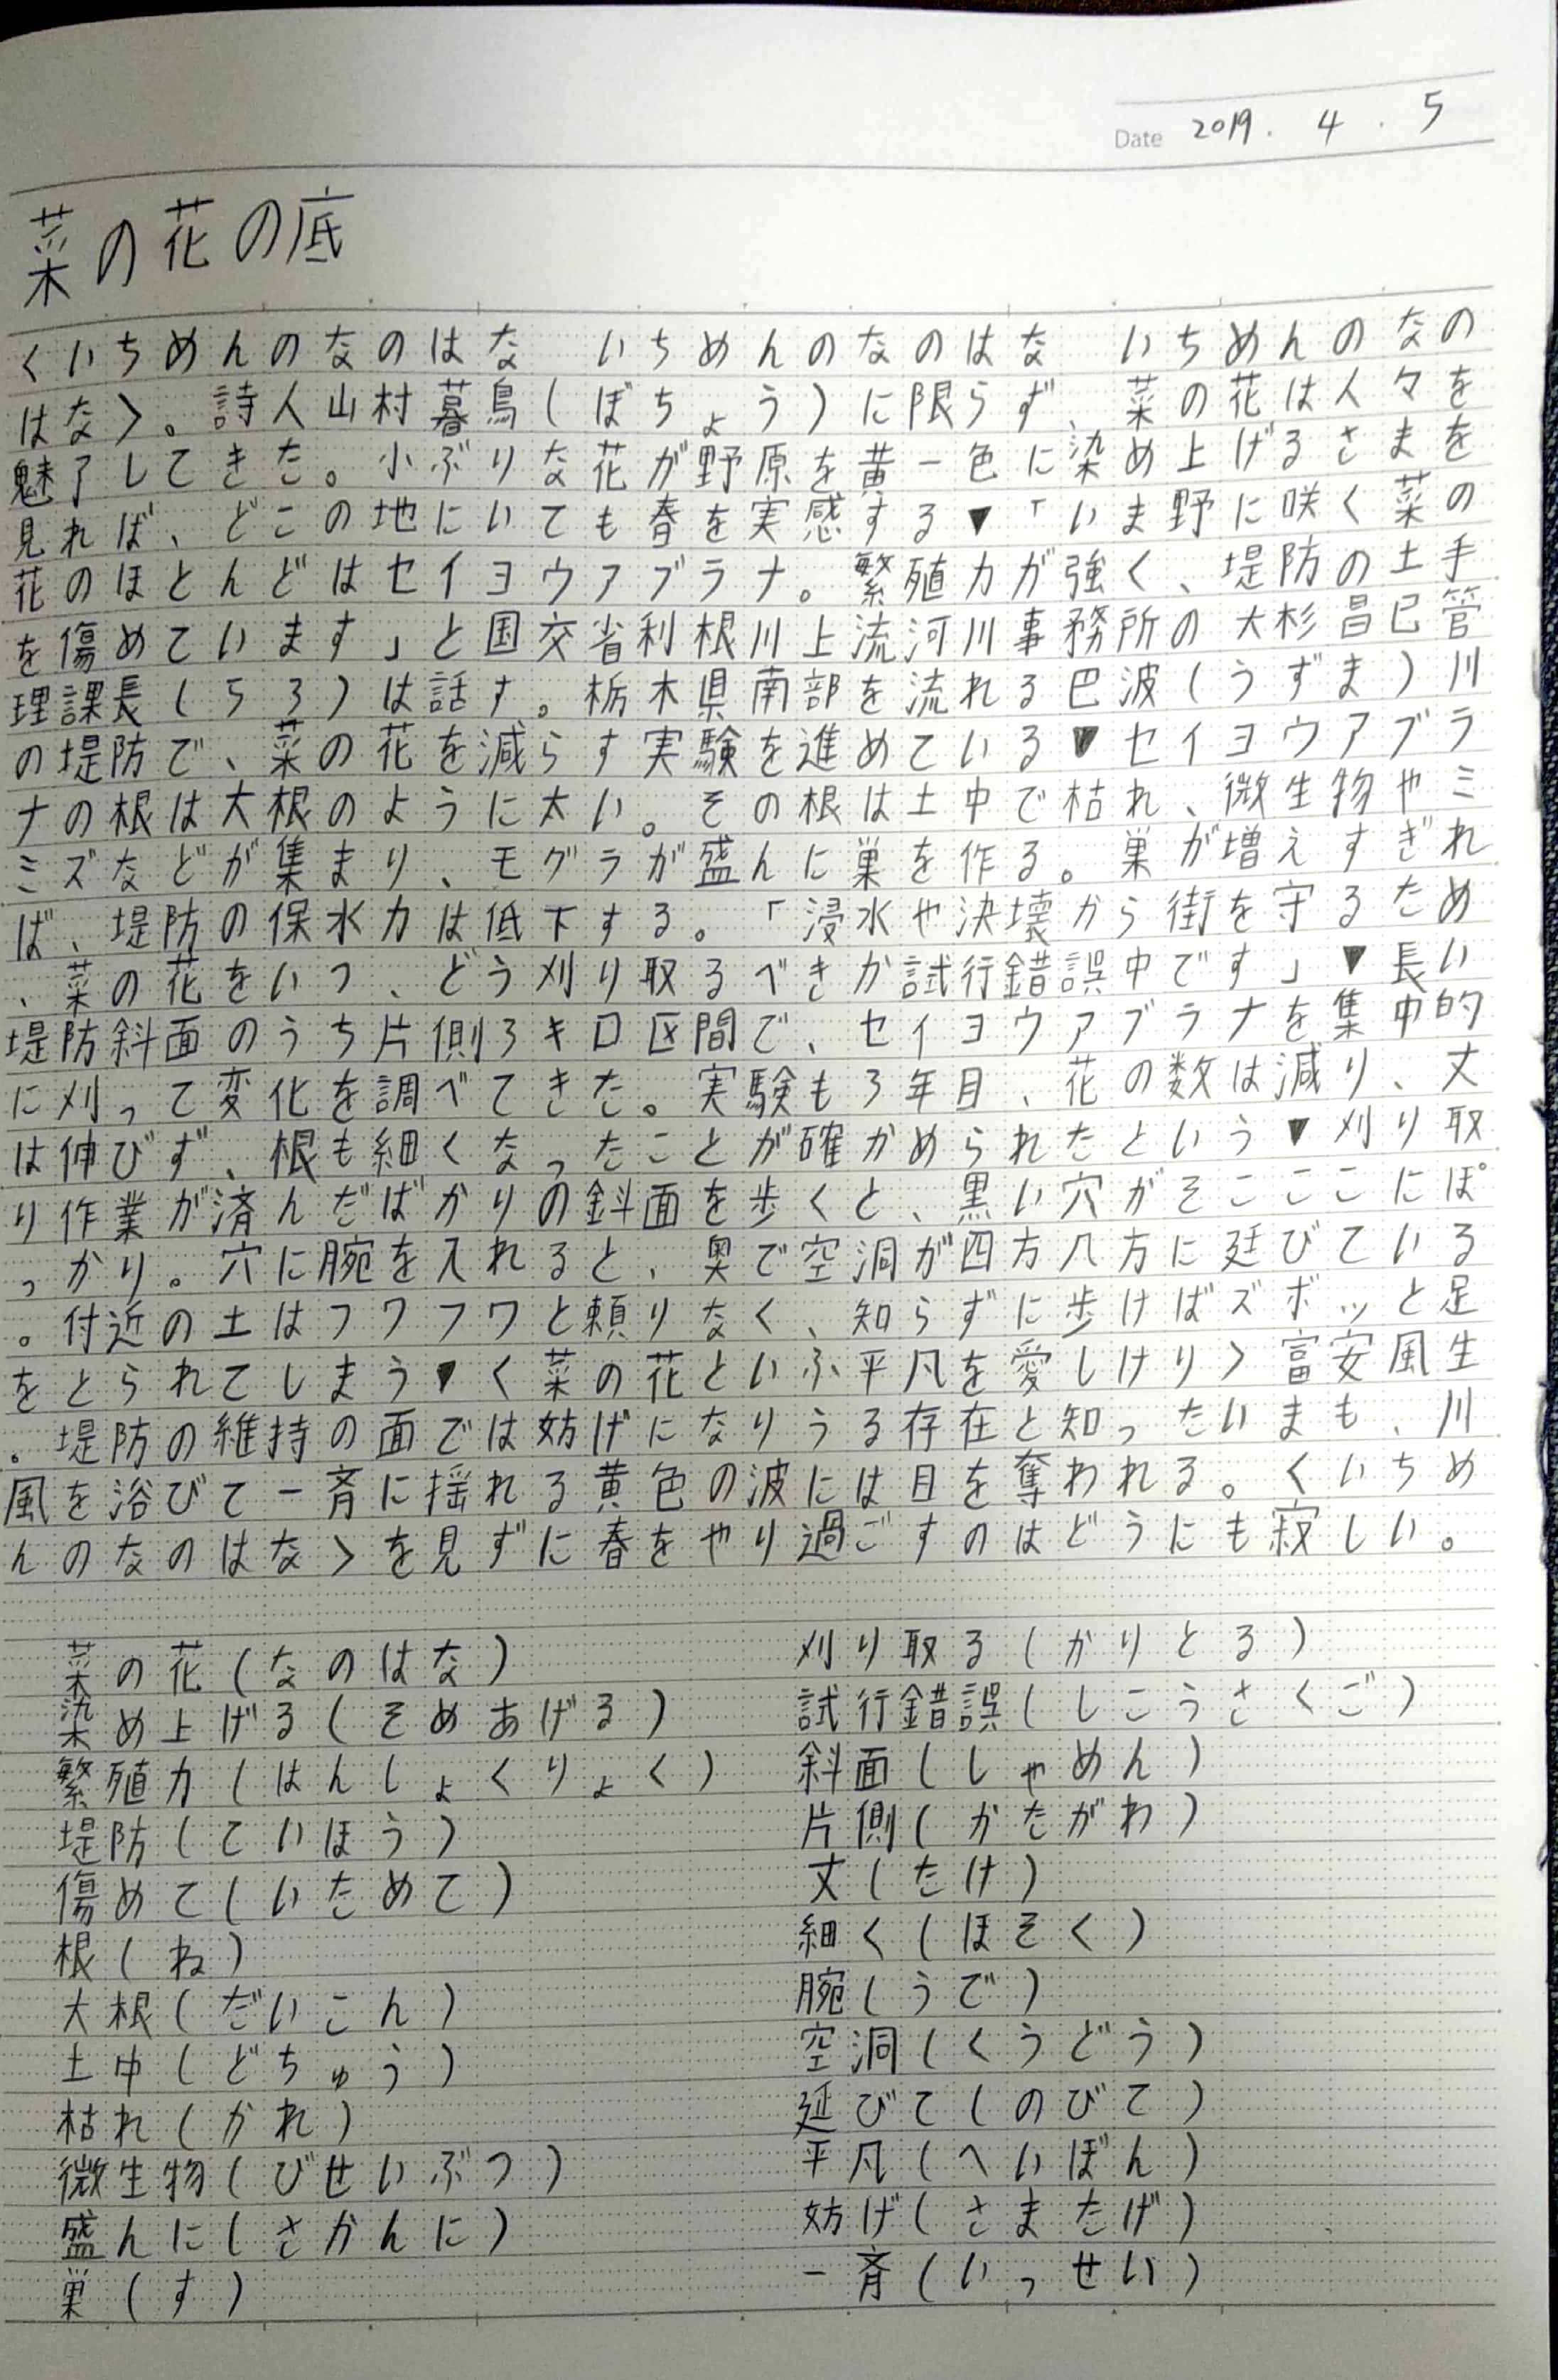 Date 2019. 4. 5
菜の花の底
〈いちめんのなのはな　いちめんのなのはな　いちめんのなの
はな〉。詩人山村暮鳥(ぼちょう)に限らず、菜の花は人々を
魅了してきた。小ぶりな花が野原を黄一色に染め上げるさまを
見れば、どこの地にいても春を実感する▼「いま野に咲く菜の
花のほとんどはセイヨウアブラナ。繁殖力が強く、堤防の土手
を傷めています」と国交省利根川上流河川事務所の大杉昌巳管
理課長(53)は話す。栃木県南部を流れる巴波(うずま)川
の堤防で、菜の花を減らす実験を進めている▼セイヨウアブラ
ナの根は大根のように太い。その根は土中で枯れ、微生物やミ
ミズなどが集まり、モグラが盛んに巣を作る。巣が増えすぎれ
ば、堤防の保水力は低下する。「浸水や決壊から街を守るため
、菜の花をいつ、どう刈り取るべきか試行錯誤中です」▼長い
堤防斜面のうち片側3キロ区間で、セイヨウアブラナを集中的
に刈って変化を調べてきた。実験も3年目、花の数は減り、丈
は伸びず、根も細くなったことが確かめられたという▼刈り取
り作業が済んだばかりの斜面を歩くと、黒い穴がそこここにぽ
っかり。穴に腕を入れると、奥で空洞が四方八方に延びている
。付近の土はフワフワと頼りなく、知らずに歩けばズボッと足
をとられてしまう▼〈菜の花といふ平凡を愛しけり〉富安風生
。堤防の維持の面では妨げになりうる存在と知ったいまも、川
風を浴びて一斉に揺れる黄色の波には目を奪われる。〈いちめ
んのなのはな〉を見ずに春をやり過ごすのはどうにも寂しい。
菜の花(なのはな)
染め上げる(そめあげる)
繁殖力(はんしょくりょく)
堤防(ていほう)
傷めて(いためて)
根(ね)
大根(だいこん)
土中(どちゅう)
枯れ(かれ)
微生物(びせいぶつ)
盛んに(さかんに)
巣(す)
刈り取る(かりとる)
試行錯誤(しこうさくご)
斜面(しゃめん)
片側(かたがわ)
丈(たけ)
細く(ほそく)
腕(うで)
空洞(くうどう)
延びて(のびて)
平凡(へいぼん)
妨げ(さまたげ)
一斉(いっせい)